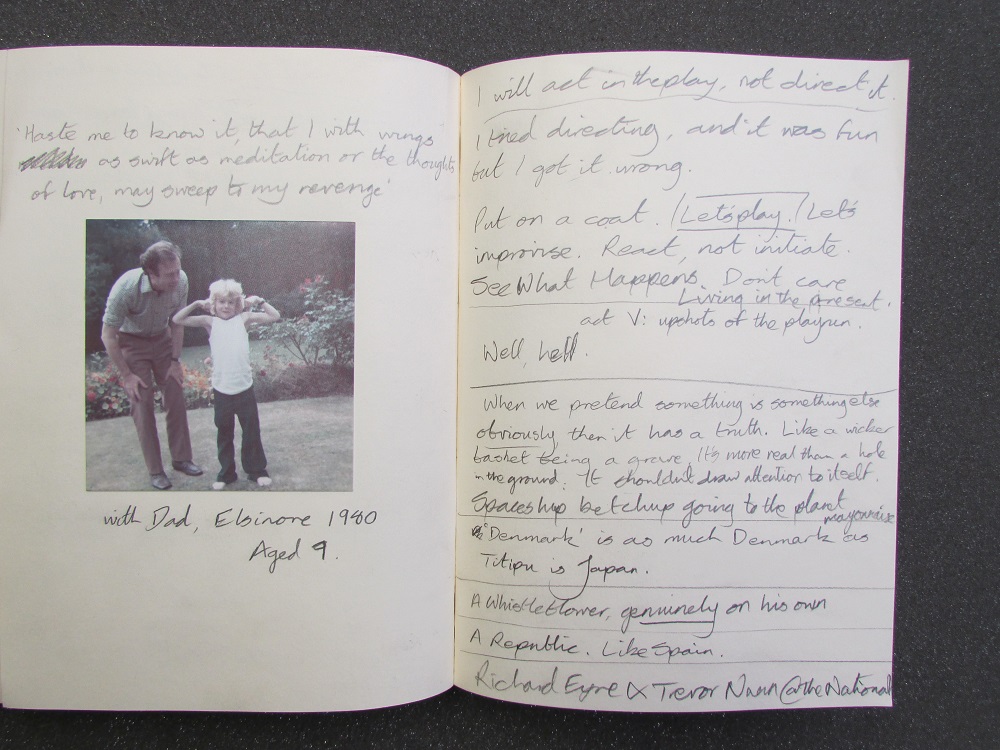 'Haste me to know it, that I with wings
as swift as meditation or the thoughts
of love, may sweep to my revenge'
with Dad, Elsinore 1980
Aged 9.
I will act in the play, not direct it.
I tried directing, and it was fun
but I got it wrong.
Put on a coat. Let's play. Let's
improvise. React, not initiate.
See What Happens. Don't care
Living in the present.
act V: upshots of the playrun.
Well, hell.
When we pretend something is something else
obviously, then it has a truth. Like a wicker
basket being a grave. It's more real than a hole
in the ground. It shouldn't draw attention to itself.
Spaceship ketchup going to the planet
mayonnaise
'Denmark' is as much Denmark as
Titipu is Japan.
A Whistleblower, genuinely on his own
A Republic. Like Spain.
Richard Eyre & Trevor Nunn @ the National